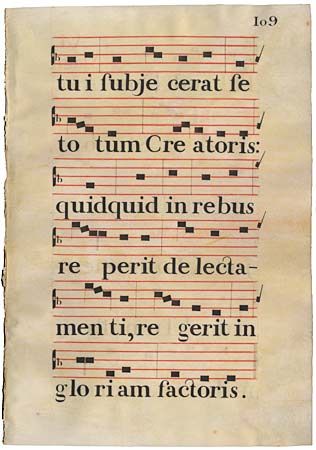 109
tu i ſubje cerat ſe
to tum Cre atoris:
quidquid in rebus
re perit de lecta-
men ti, re gerit in
glo ri am factoris.